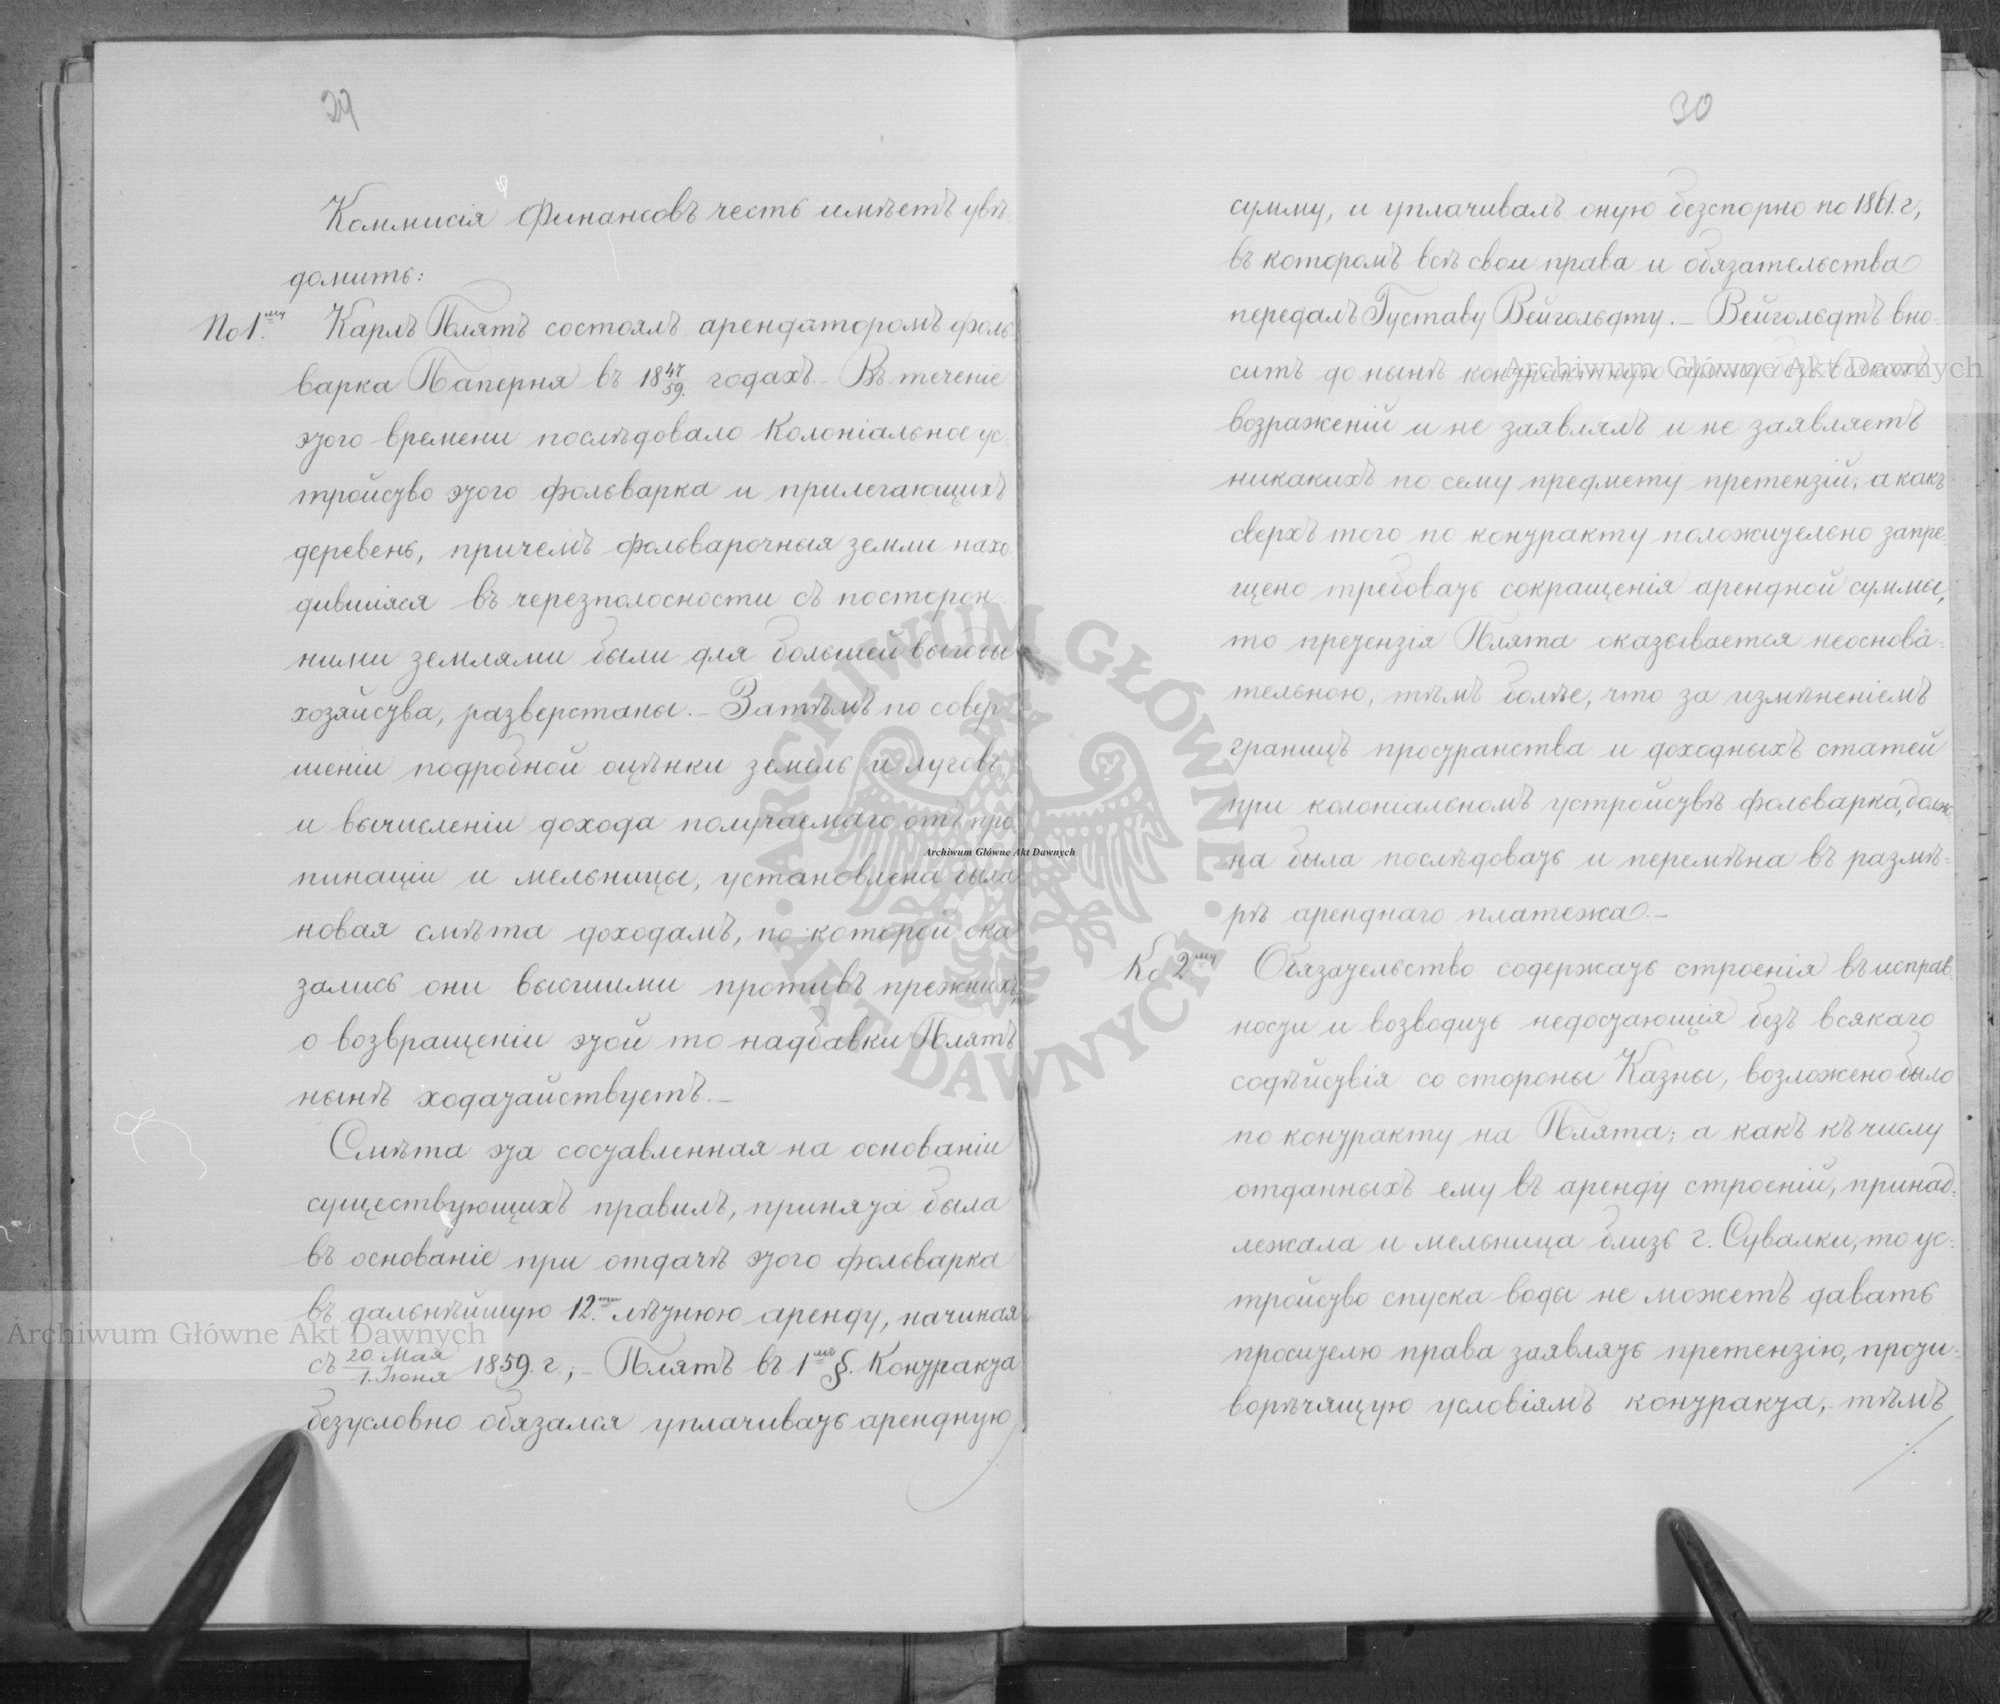 29
Коммисія Финансовъ честь имѣетъ увѣ-
домить:
По 1му. Карлъ Плятъ состоялъ арендаторомъ фоль-
варка Паперня въ 18 47/59. годахъ. – Въ теченіе
этого времени послѣдовало Колоніальное ус-
тройство этого фольварка и прилегающихъ
деревень, причемъ фольварочныя земли нахо-
дившіяся въ черезполосности съ посторон-
ними землями были для большей выгоды
хозяйства, разверстаны. – Затѣмъ по совер-
шеніи подробной оцѣнки земель и луговъ
и вычисленіи дохода получаемаго отъ про-
пинаціи и мельницы, установлена была
новая смѣта доходамъ, по которой ока-
зались они высшими противъ прежнихъ,
о возвращеніи этой то надбавки Плятъ
нынѣ ходатайствуетъ. –
Смѣта эта составленная на основаніи
существующихъ правилъ, принята была
въ основаніе при отдачѣ этого фольварка
въ дальнѣйшую 12.ти лѣтнюю аренду, начиная
съ 20. Мая/1. Іюня 1859. г.; – Плятъ въ 1мъ §. Контракта
безусловно обязался уплачивать арендную
30
сумму, и уплачивалъ оную безспорно по 1861. г,
въ которомъ всѣ свои права и обязательства
передалъ Густаву Вейгольдту. – Вейгольдтъ вно-
ситъ до нынѣ контрактную
возраженій и не заявлялъ и не заявляетъ
никакихъ по сему предмету претензій; а какъ
сверхъ того по контракту положительно запре-
щено требовать сокращенія арендной суммы,
то претензія Плята оказывается неоснова-
тельною, тѣмъ болѣе, что за измѣненіемъ
границъ пространства и доходныхъ статей
при колоніальномъ устройствѣ фольварка, долж-
на была послѣдовать и перемѣна въ размѣ-
рѣ аренднаго платежа. –
Ко 2му Обязательство содержать строенія въ исправ-
ности и возводить недостающія безъ всякаго
содѣйствія со стороны Казны, возложено было
по контракту на Плята; а какъ къ числу
отданныхъ ему въ аренду строеній, принад-
лежала и мельница близь г. Сувалки, то ус-
тройство спуска воды не можетъ давать
просителю права заявлять претензію, проти-
ворѣчящую условіямъ контракта, тѣмъ
Archiwum Główne Akt Dawnych
Archiwum Główne Akt Dawnych
Archiwum Główne Akt Dawnych
ARCHIWUM GŁÓWNE · AKT DAWNYCH ·